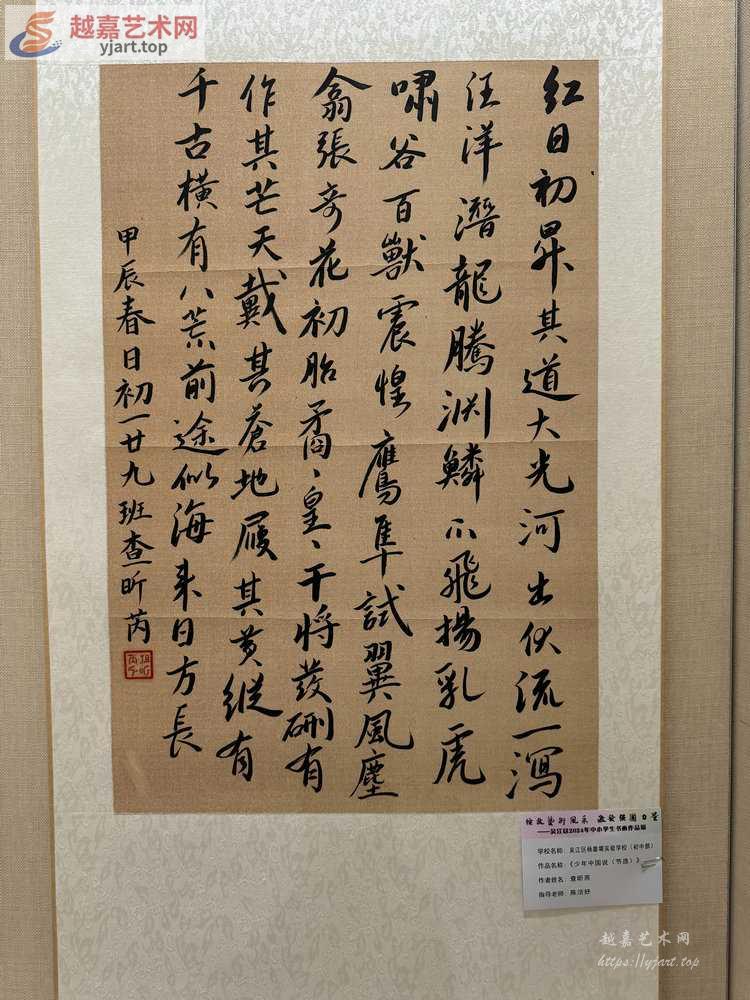 越嘉艺术网
yjart.top
红日初昇其道大光河出伏流一瀉
汪洋潛龍騰渊鳞爪飛揚乳虎
嘯谷百獸震惶鷹隼試翼風塵
翕張奇花初胎矞、皇、干将發硎有
作其芒天戴其蒼地履其黄縱有
千古橫有八荒前途似海来日方長
甲辰春日初一廿九班查昕芮
——吴江区2024年中小学生书画作品展
学校名称：吴江区杨嘉墀实验学校（初中部）
作品名称：《少年中国说（节选）》
作者姓名：查昕芮
指导老师：陈洁
越嘉艺术网
https://yjart.top